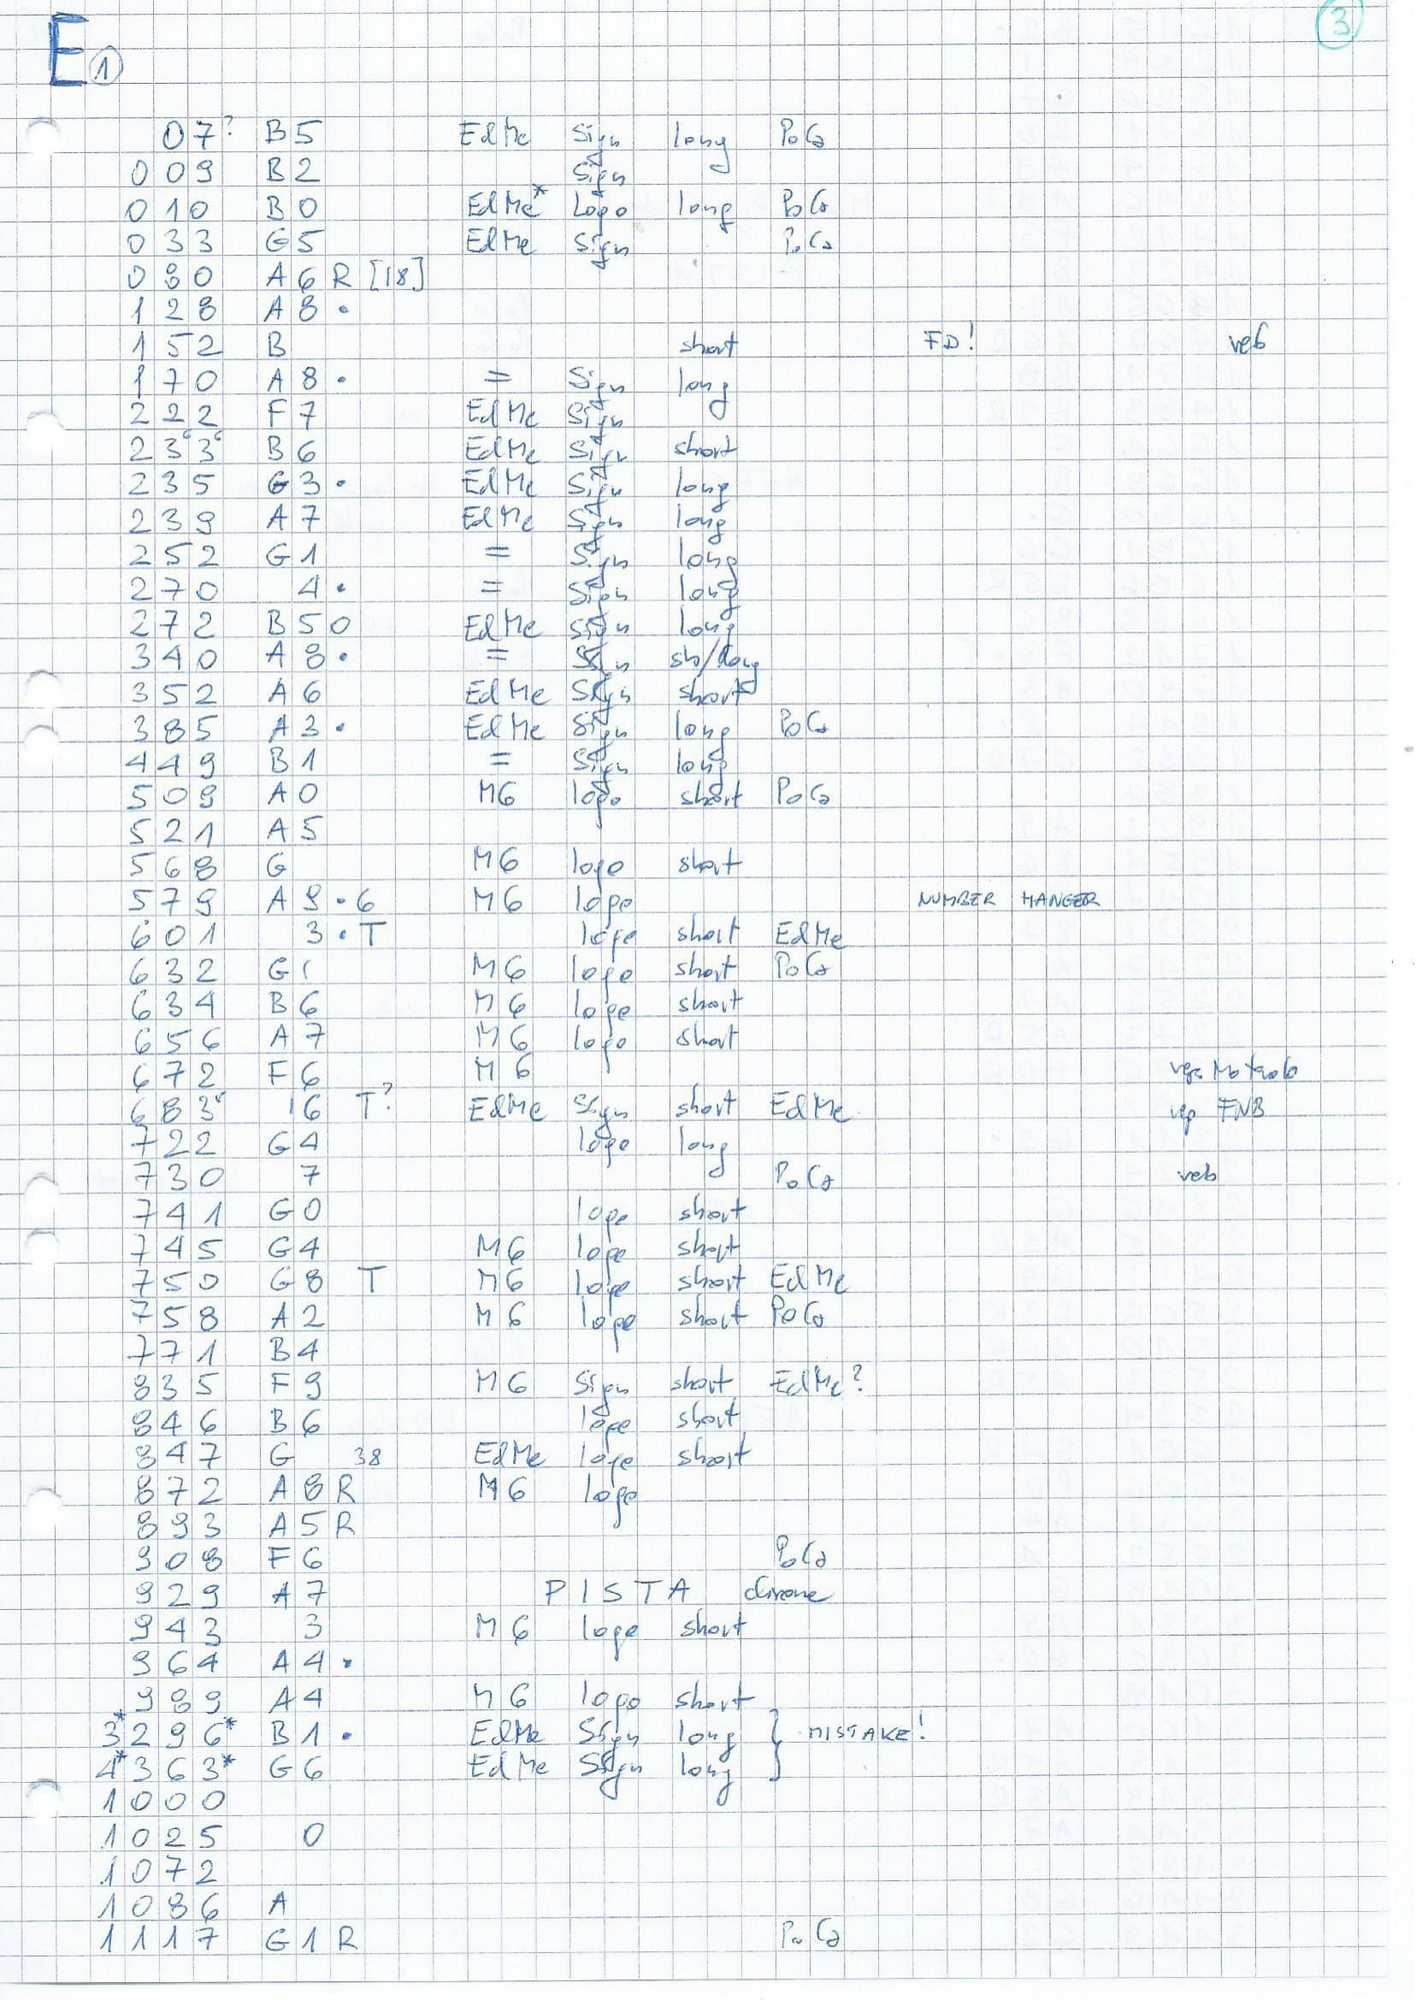 E 1 3
07? B5 EdMe Sign long PoCa
009 B2 Sign
010 B0 EdMe* Logo long PoCa
033 G5 EdMe Sign PoCa
080 A6R [18]
128 A8•
152 B short FD!
170 A8• = Sign long
222 F7 EdMe Sign
233 B6 EdMe Sign short
235 G3• EdMe Sign long
239 A7 EdMe Sign long
252 G1 = Sign long
270 4• = Sign long
272 B50 EdMe Sign long
340 A8• = Sign sh/long
352 A6 EdMe Sign short
385 A3• EdMe Sign long PoCa
449 B1 = Sign long
509 A0 M6 logo short PoCa
521 A5
568 G M6 logo short
579 A9•6 M6 logo NUMBER HANGER
601 3•T logo short EdMe
632 G M6 logo short PoCa
634 B6 M6 logo short
656 A7 M6 logo short
672 F6 M6
683 16 T? EdMe Sign short EdMe FNB
722 G4 logo long
730 7 PoCa
741 G0 logo short
745 G4 M6 logo short
750 G8 T M6 logo short EdMe
758 A2 M6 logo short PoCa
771 B4
835 F9 M6 Sign short EdMe?
846 B6 logo short
847 G 38 EdMe logo short
872 A8R M6 logo
893 A5R
908 F6 PoCa
929 A7 PISTA chrome
943 3 M6 logo short
964 A4•
989 A4 M6 logo short
3*296* B1• EdMe Sign long } MISTAKE!
4*363* G6 EdMe Sign long
1000
1025 0
1072
1086 A
1117 G1R PoCa